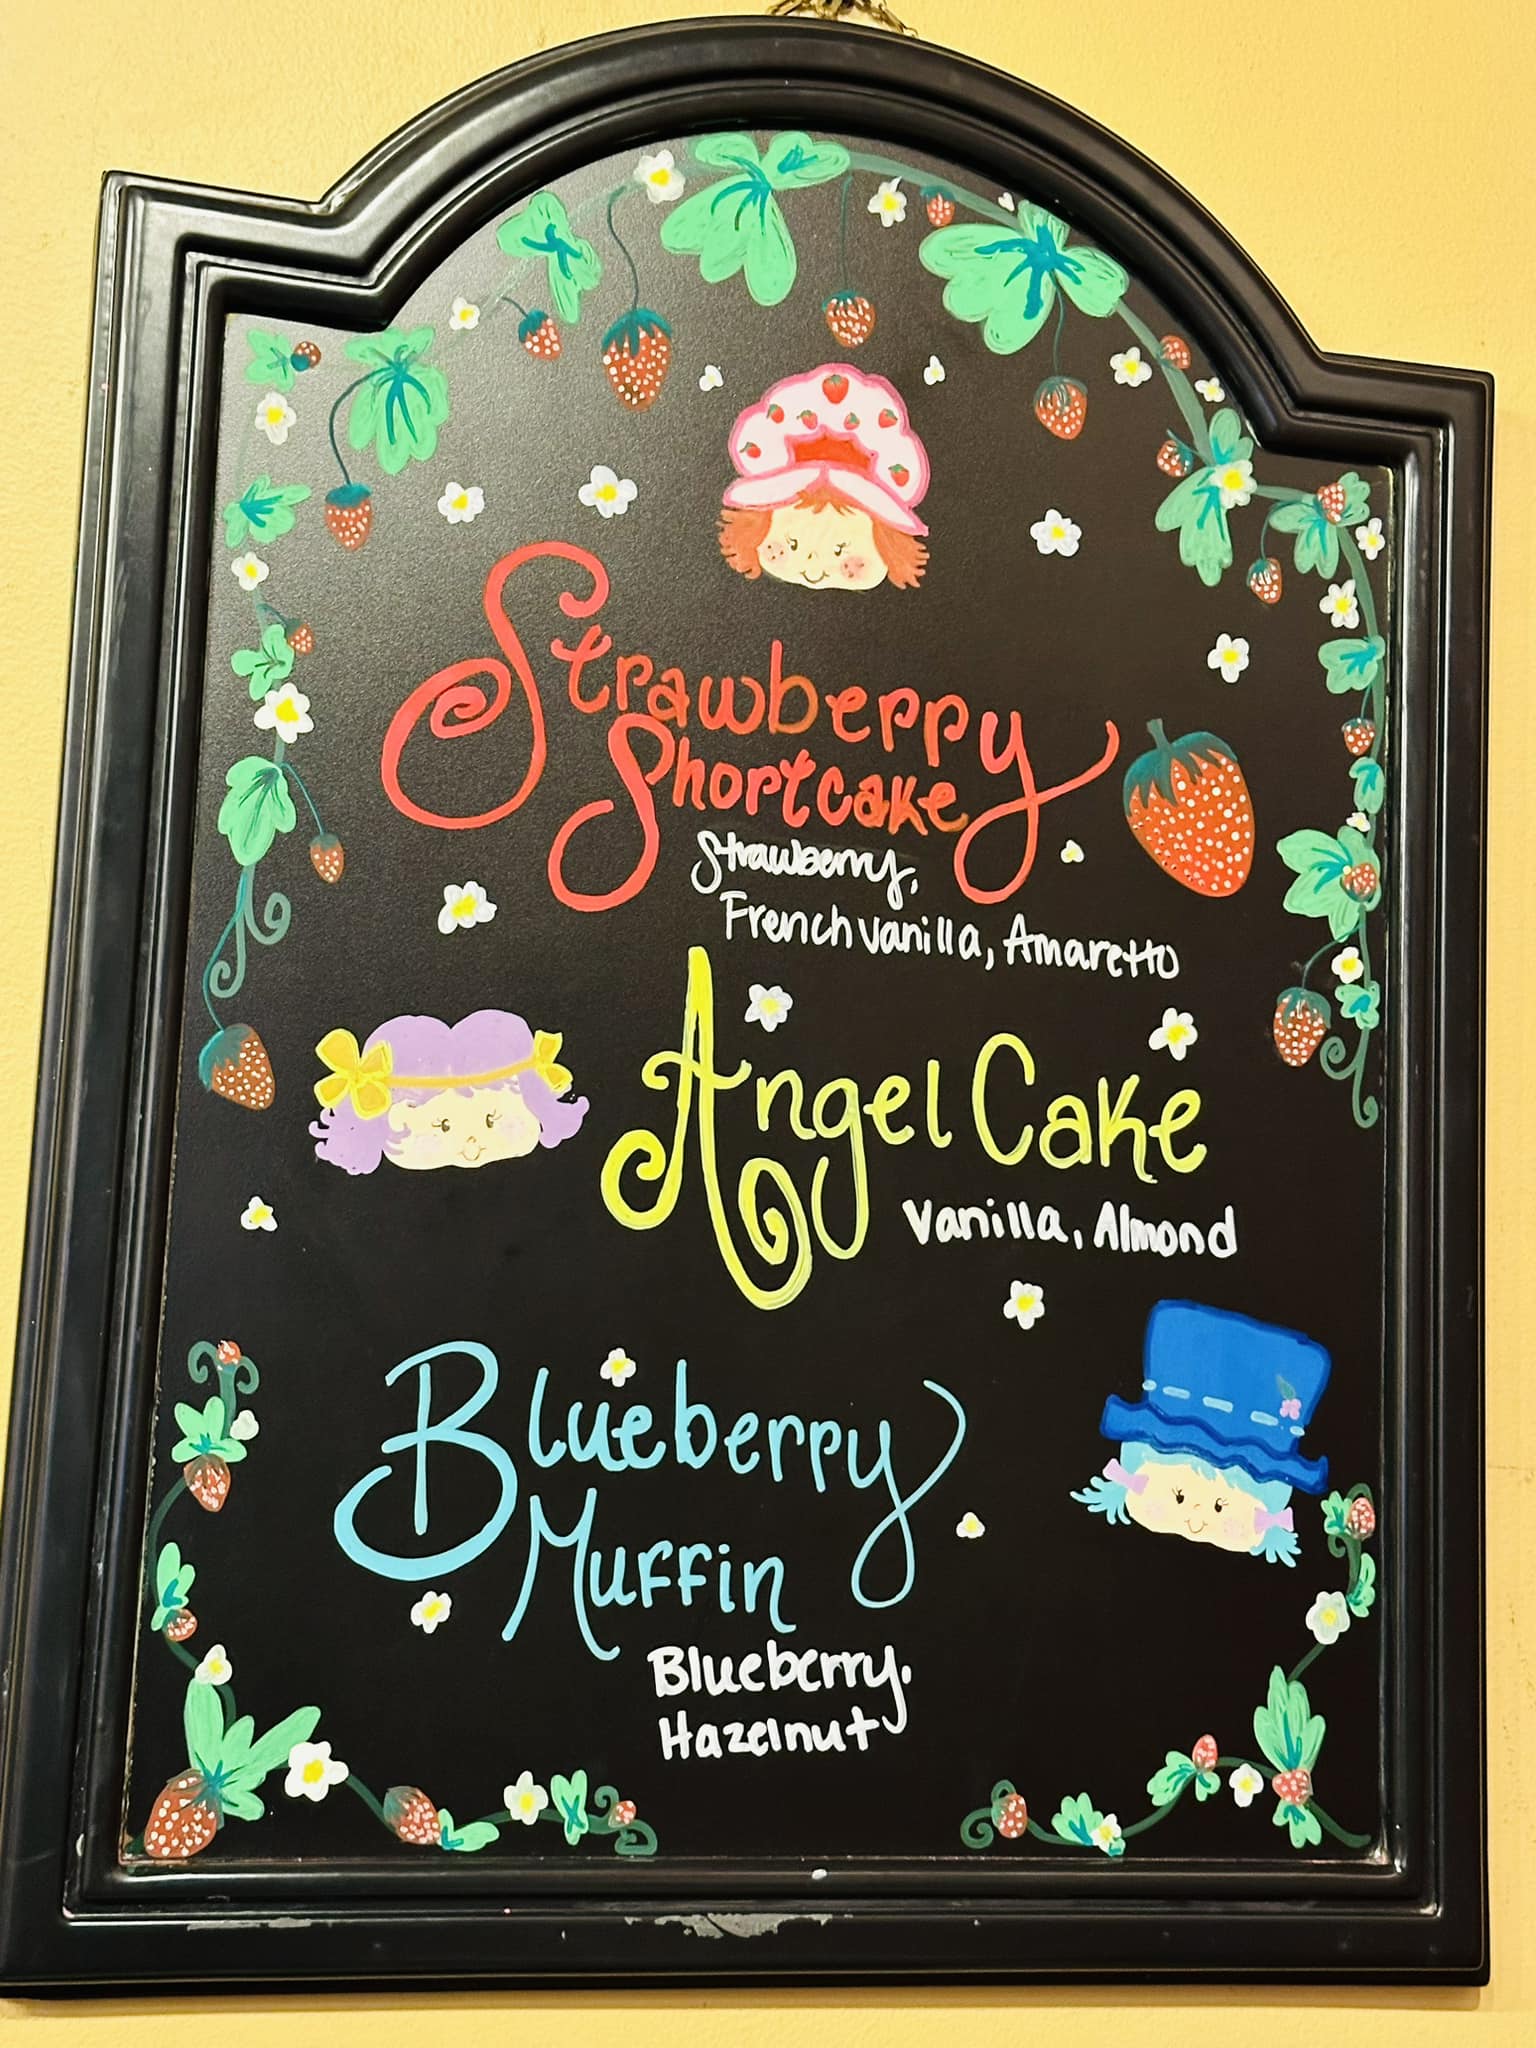 Strawberry
Shortcake
Strawberry,
French vanilla, Amaretto
Angel Cake
Vanilla, Almond
Blueberry
Muffin
Blueberry,
Hazelnut